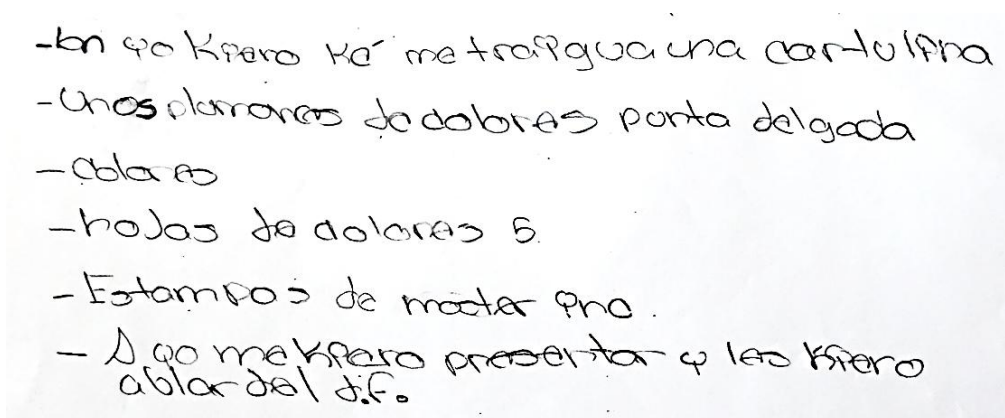 -bn yo Kiero Ké me traigua una cartulina
-Unos plumones de colores punta delgada
- Colores
- hojas de colores 5.
- Estampas de
- yo me Kiero presentar y les Kiero
ablar del d.f.